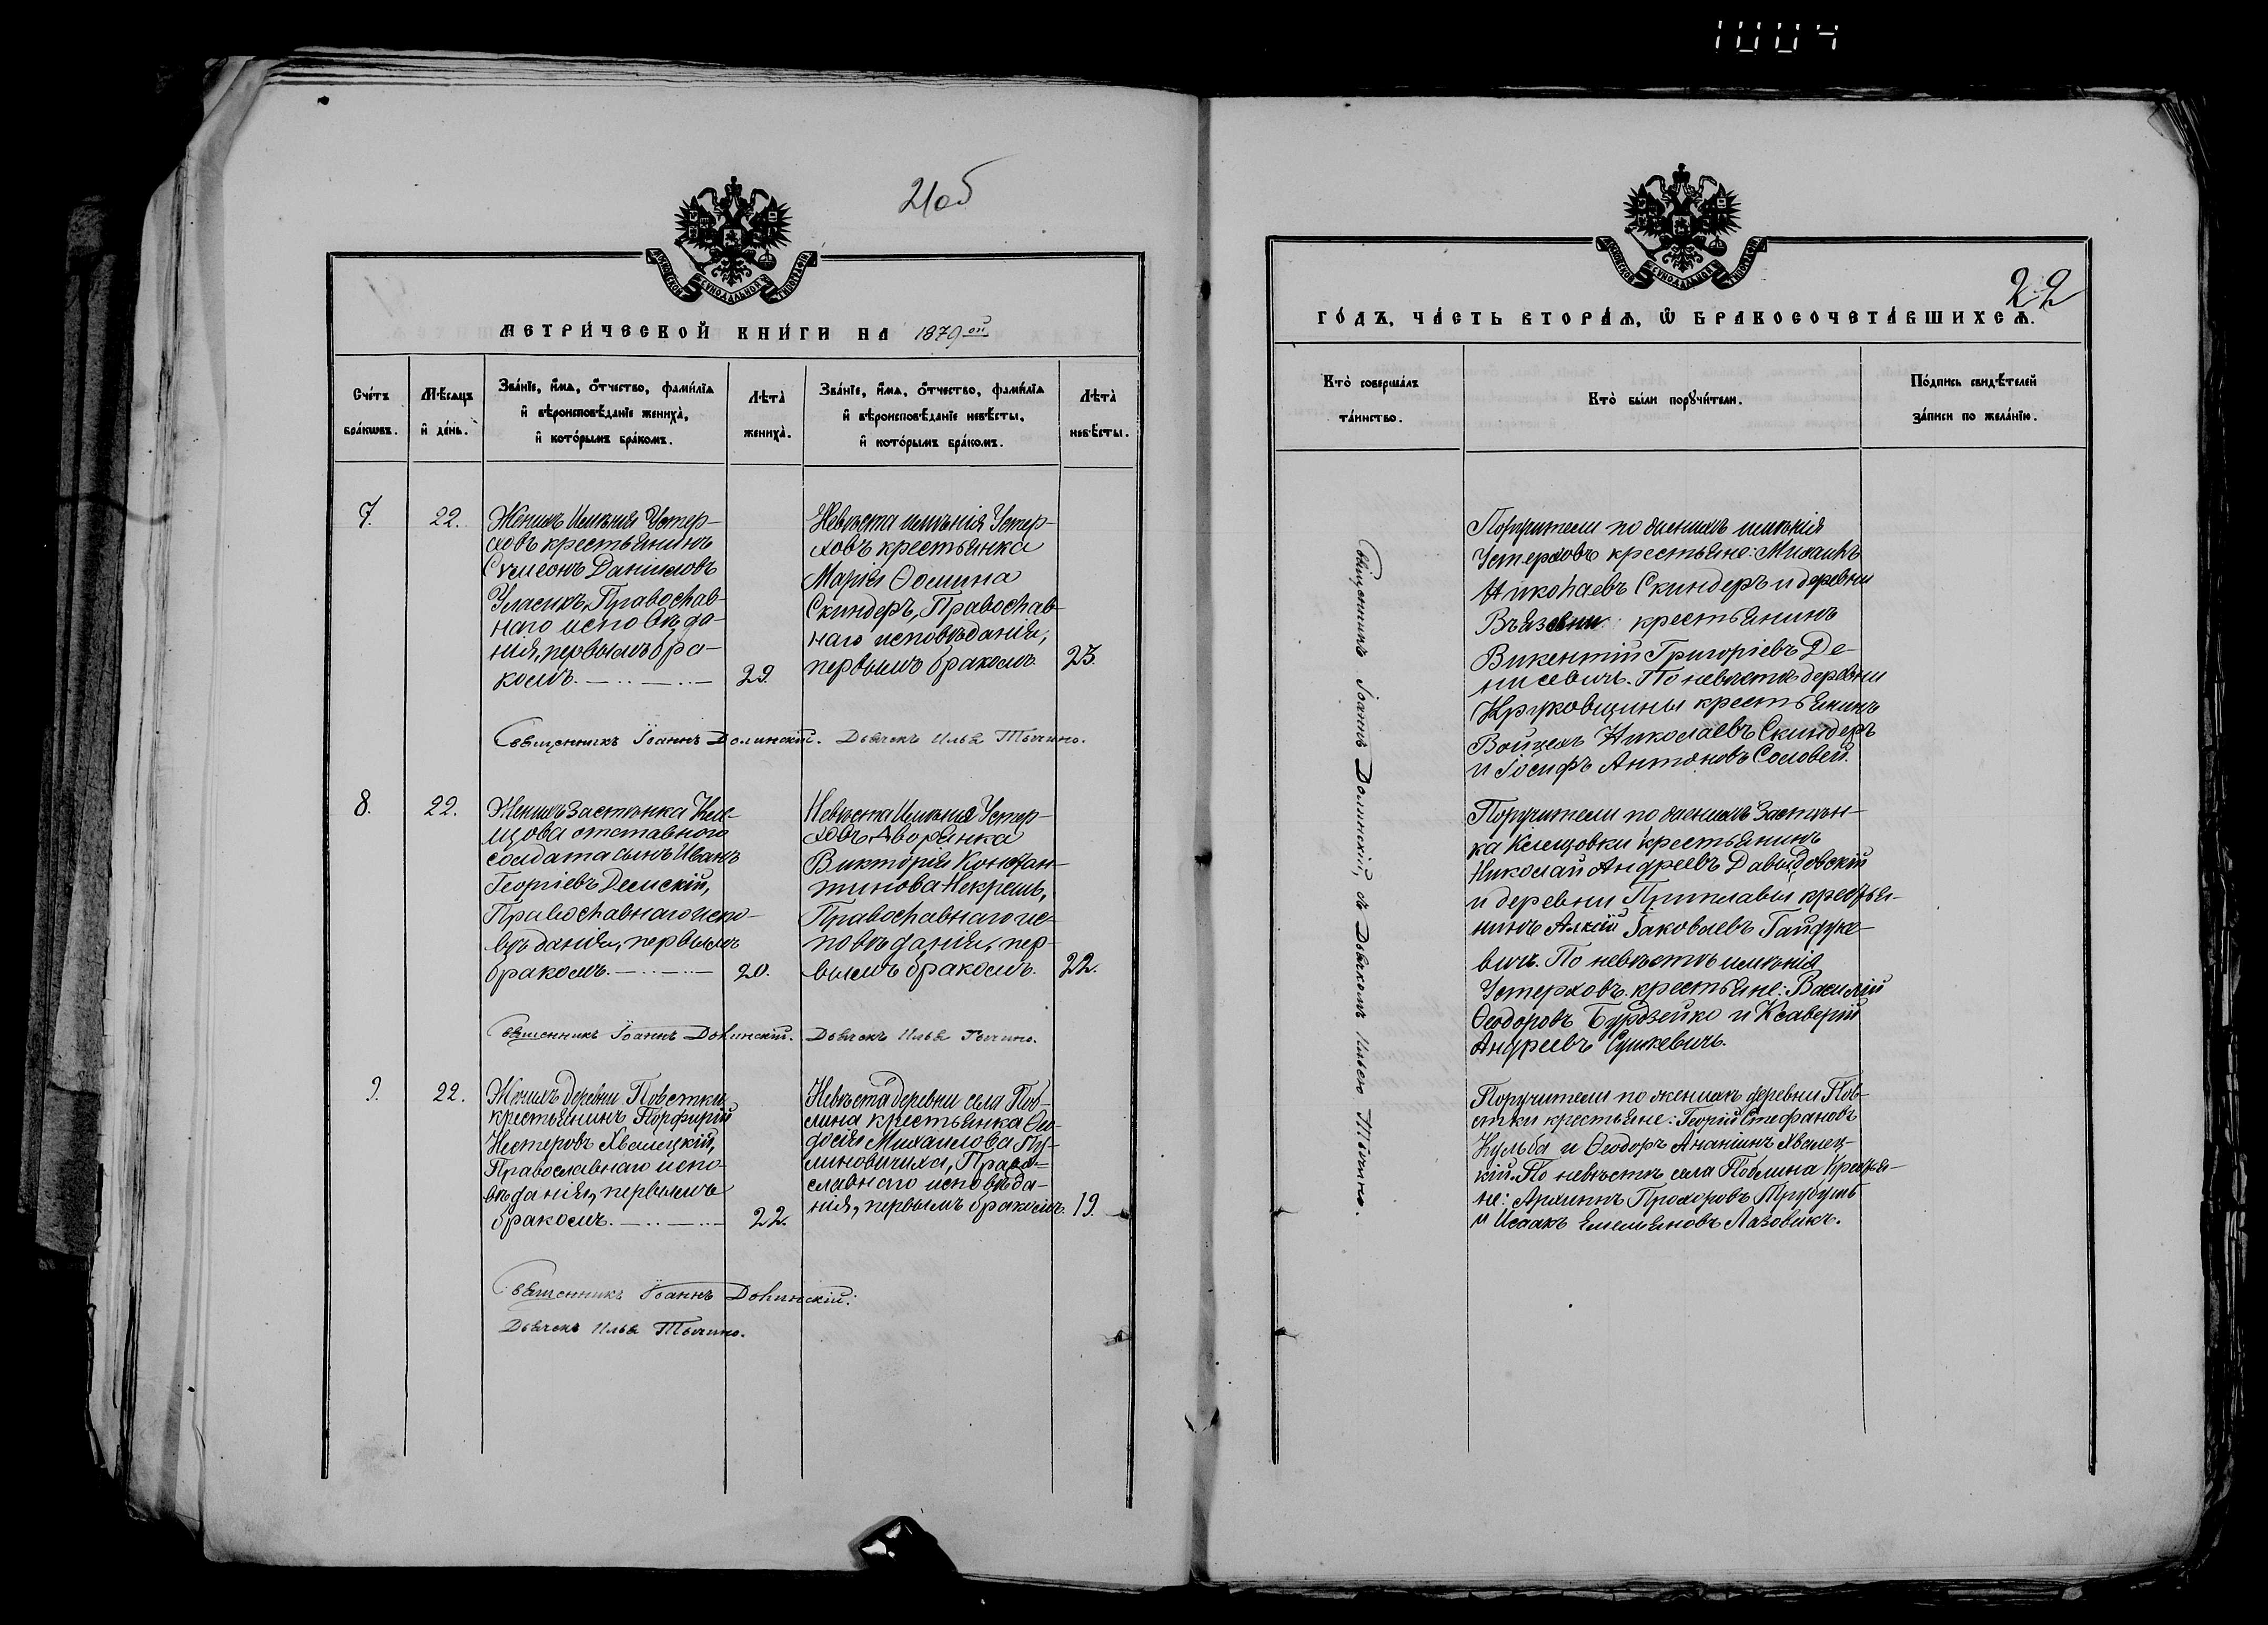 1004
21об
МЕТРИЧЕСКОЙ КНИГИ НА 1879ой
Счетъ браковъ.
Мѣсяцъ и день.
Званіе, имя, отчество, фамилія и вѣроисповѣданіе жениха, и которымъ бракомъ.
Лѣта жениха.
Званіе, имя, отчество, фамилія и вѣроисповѣданіе невѣсты, и которымъ бракомъ.
Лѣта невѣсты.
7.
22.
Женихъ Имѣнія Устер-
ховъ крестьянинъ
Сѵмеонъ Даниловъ
Православ-
наго исповѣда-
нія, первымъ бра-
комъ.
29.
Невѣста имѣнія Устер-
ховъ крестьянка
Марія Ѳомина
Скиндеръ, Православ-
наго исповѣданія,
первымъ бракомъ.
23.
Священникъ Іоаннъ Долинскій. Дьячекъ Илья Тычино.
8.
22.
Женихъ Застѣнка Кле-
щова отставного
солдата сынъ Иванъ
Георгіевъ Демскій,
Православнаго испо-
вѣданія, первымъ
бракомъ.
20.
Невѣста Имѣнія Устер-
ховъ Дворянка
Викторія Констан-
тинова Некрешъ,
Православнаго ис-
повѣданія, пер-
вымъ бракомъ.
22.
Священникъ Іоаннъ Долинскій. Дьячекъ Илья Тычино.
9.
22.
Женихъ деревни Повстки
крестьянинъ Порфирій
Нестеровъ Хвалецкій,
Православнаго испо-
вѣданія, первымъ
бракомъ.
22.
Невѣста деревни села Поб-
лина крестьянка Ѳео-
досія Михаилова
Право-
славнаго исповѣда-
нія, первымъ бракомъ.
19.
Священникъ Іоаннъ Долинскій.
Дьячекъ Илья Тычино.
22
ГОДЪ, ЧАСТЬ ВТОРАЯ, Ѡ БРАКОСОЧЕТАВШИХСЯ.
Кто совершалъ таинство.
Кто были поручители.
Подпись свидѣтелей записи по желанію.
Священникъ Іоаннъ Долинскій, съ Дьячкомъ Ильею Тычино.
Поручители по женихѣ имѣнія
Устерховъ крестьяне: Михаилъ
Николаевъ Скиндеръ и деревни
крестьянинъ
Викентій Григоріевъ Де-
нисевичъ. По невѣстѣ деревни
Круковщины крестьянинъ
Войцехъ Николаевъ Скиндеръ
и Іосифъ Антоновъ Соловей.
Поручители по женихѣ Застѣн-
ка Клещовки крестьянинъ
Николай Андреевъ Давыдовскій
и деревни Приплавы крестья-
нинъ Іаковлевъ Гайдуке-
вичъ. По невѣстѣ имѣнія
Устерховъ крестьяне: Василій
Ѳеодоровъ Бурдзейко и Ксаверій
Андреевъ Сушкевичъ.
Поручители по женихѣ деревни Пов-
стки крестьяне: Георгій Стефановъ
Кульба и Ѳеодоръ Ананіинъ Хвалец-
кій. По невѣстѣ села Поблина Крестья-
не: Архипъ Прохоровъ Трубушъ
и Исаакъ Емельяновъ Лазовикъ.